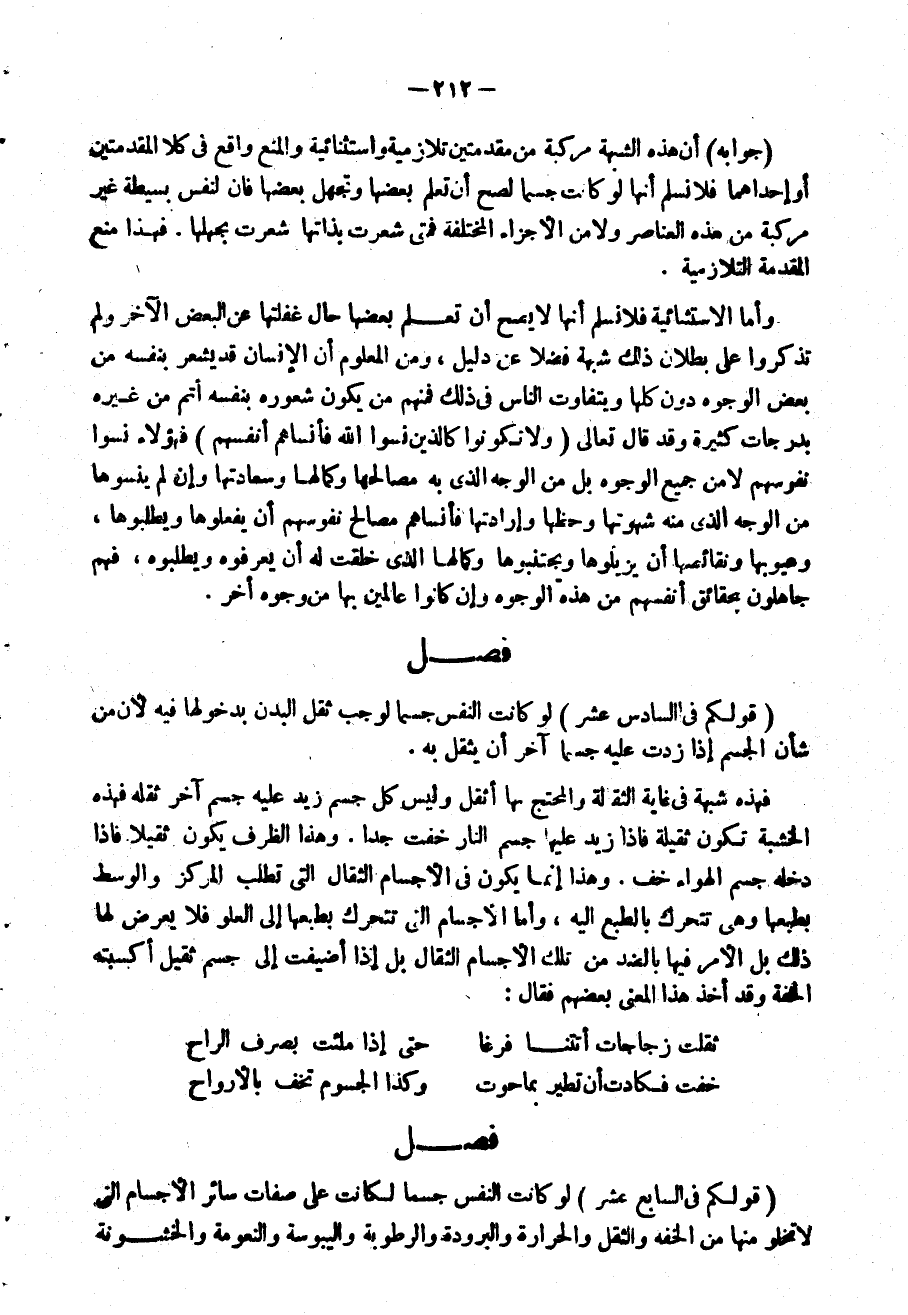 — ٢١٢ —
(جوابه) أن هذه الشبهة مركبة من مقدمتين تلازمية واستثنائية والمنع واقع فى كلا المقدمتين
أو إحداهما فلا نسلم أنها لو كانت جسما لصح أن تعلم بعضها وتجهل بعضها فان لنفس بسيطة غير
مركبة من هذه العناصر ولا من الأجزاء المختلفة فمتى شعرت بذاتها شعرت بجهلها . فهذا منع
المقدمة التلازمية .
وأما الاستثنائية فلا نسلم أنها لا يصح أن تعلم بعضها حال غفلتها عن البعض الآخر ولم
تذكروا على بطلان ذلك شبهة فضلا عن دليل ، ومن المعلوم أن الإنسان قد يشعر بنفسه من
بعض الوجوه دون كلها ويتفاوت الناس فى ذلك فمنهم من يكون شعوره بنفسه أتم من غيره
بدرجات كثيرة وقد قال تعالى ( ولا تكونوا كالذين نسوا الله فأنساهم أنفسهم ) فهؤلاء نسوا
نفوسهم لا من جميع الوجوه بل من الوجه الذى به مصالحها وكمالها وسعادتها وإن لم ينسوها
من الوجه الذى منه شهوتها وحظها وإرادتها فأنساهم مصالح نفوسهم أن يفعلوها ويطلبوها ،
وعيوبها ونقائصها أن يزيلوها ويجتنبوها وكمالها الذى خلقت له أن يعرفوه ويطلبوه ، فهم
جاهلون بحقائق أنفسهم من هذه الوجوه وإن كانوا عالمين بها من وجوه أخر .
فصل
( قولكم فى السادس عشر ) لو كانت النفس جسما لوجب ثقل البدن بدخولها فيه لأن من
شأن الجسم إذا زدت عليه جسما آخر أن يثقل به .
فهذه شبهة فى غاية الثقالة والمحتج بها أثقل وليس كل جسم زيد عليه جسم آخر ثقله فهذه
الخشبة تكون ثقيلة فاذا زيد عليها جسم النار خفت جدا . وهذا الظرف يكون ثقيلا فاذا
دخله جسم الهواء خف . وهذا إنما يكون فى الأجسام الثقال التى تطلب المركز والوسط
بطبعها وهى تتحرك بالطبع اليه ، وأما الأجسام التى تتحرك بطبعها إلى العلو فلا يعرض لها
ذلك بل الأمر فيها بالضد من تلك الأجسام الثقال بل إذا أضيفت إلى جسم ثقيل أكسبته
الخفة وقد أخذ هذا المعنى بعضهم فقال :
ثقلت زجاجات أتتنا فرغا حتى إذا ملئت بصرف الراح
خفت فكادت أن تطير بما حوت وكذا الجسوم تخف بالأرواح
فصل
( قولكم فى السابع عشر ) لو كانت النفس جسما لكانت على صفات سائر الأجسام التى
لا تخلو منها من الخفه والثقل والحرارة والبرودة والرطوبة واليبوسة والنعومة والخشونة